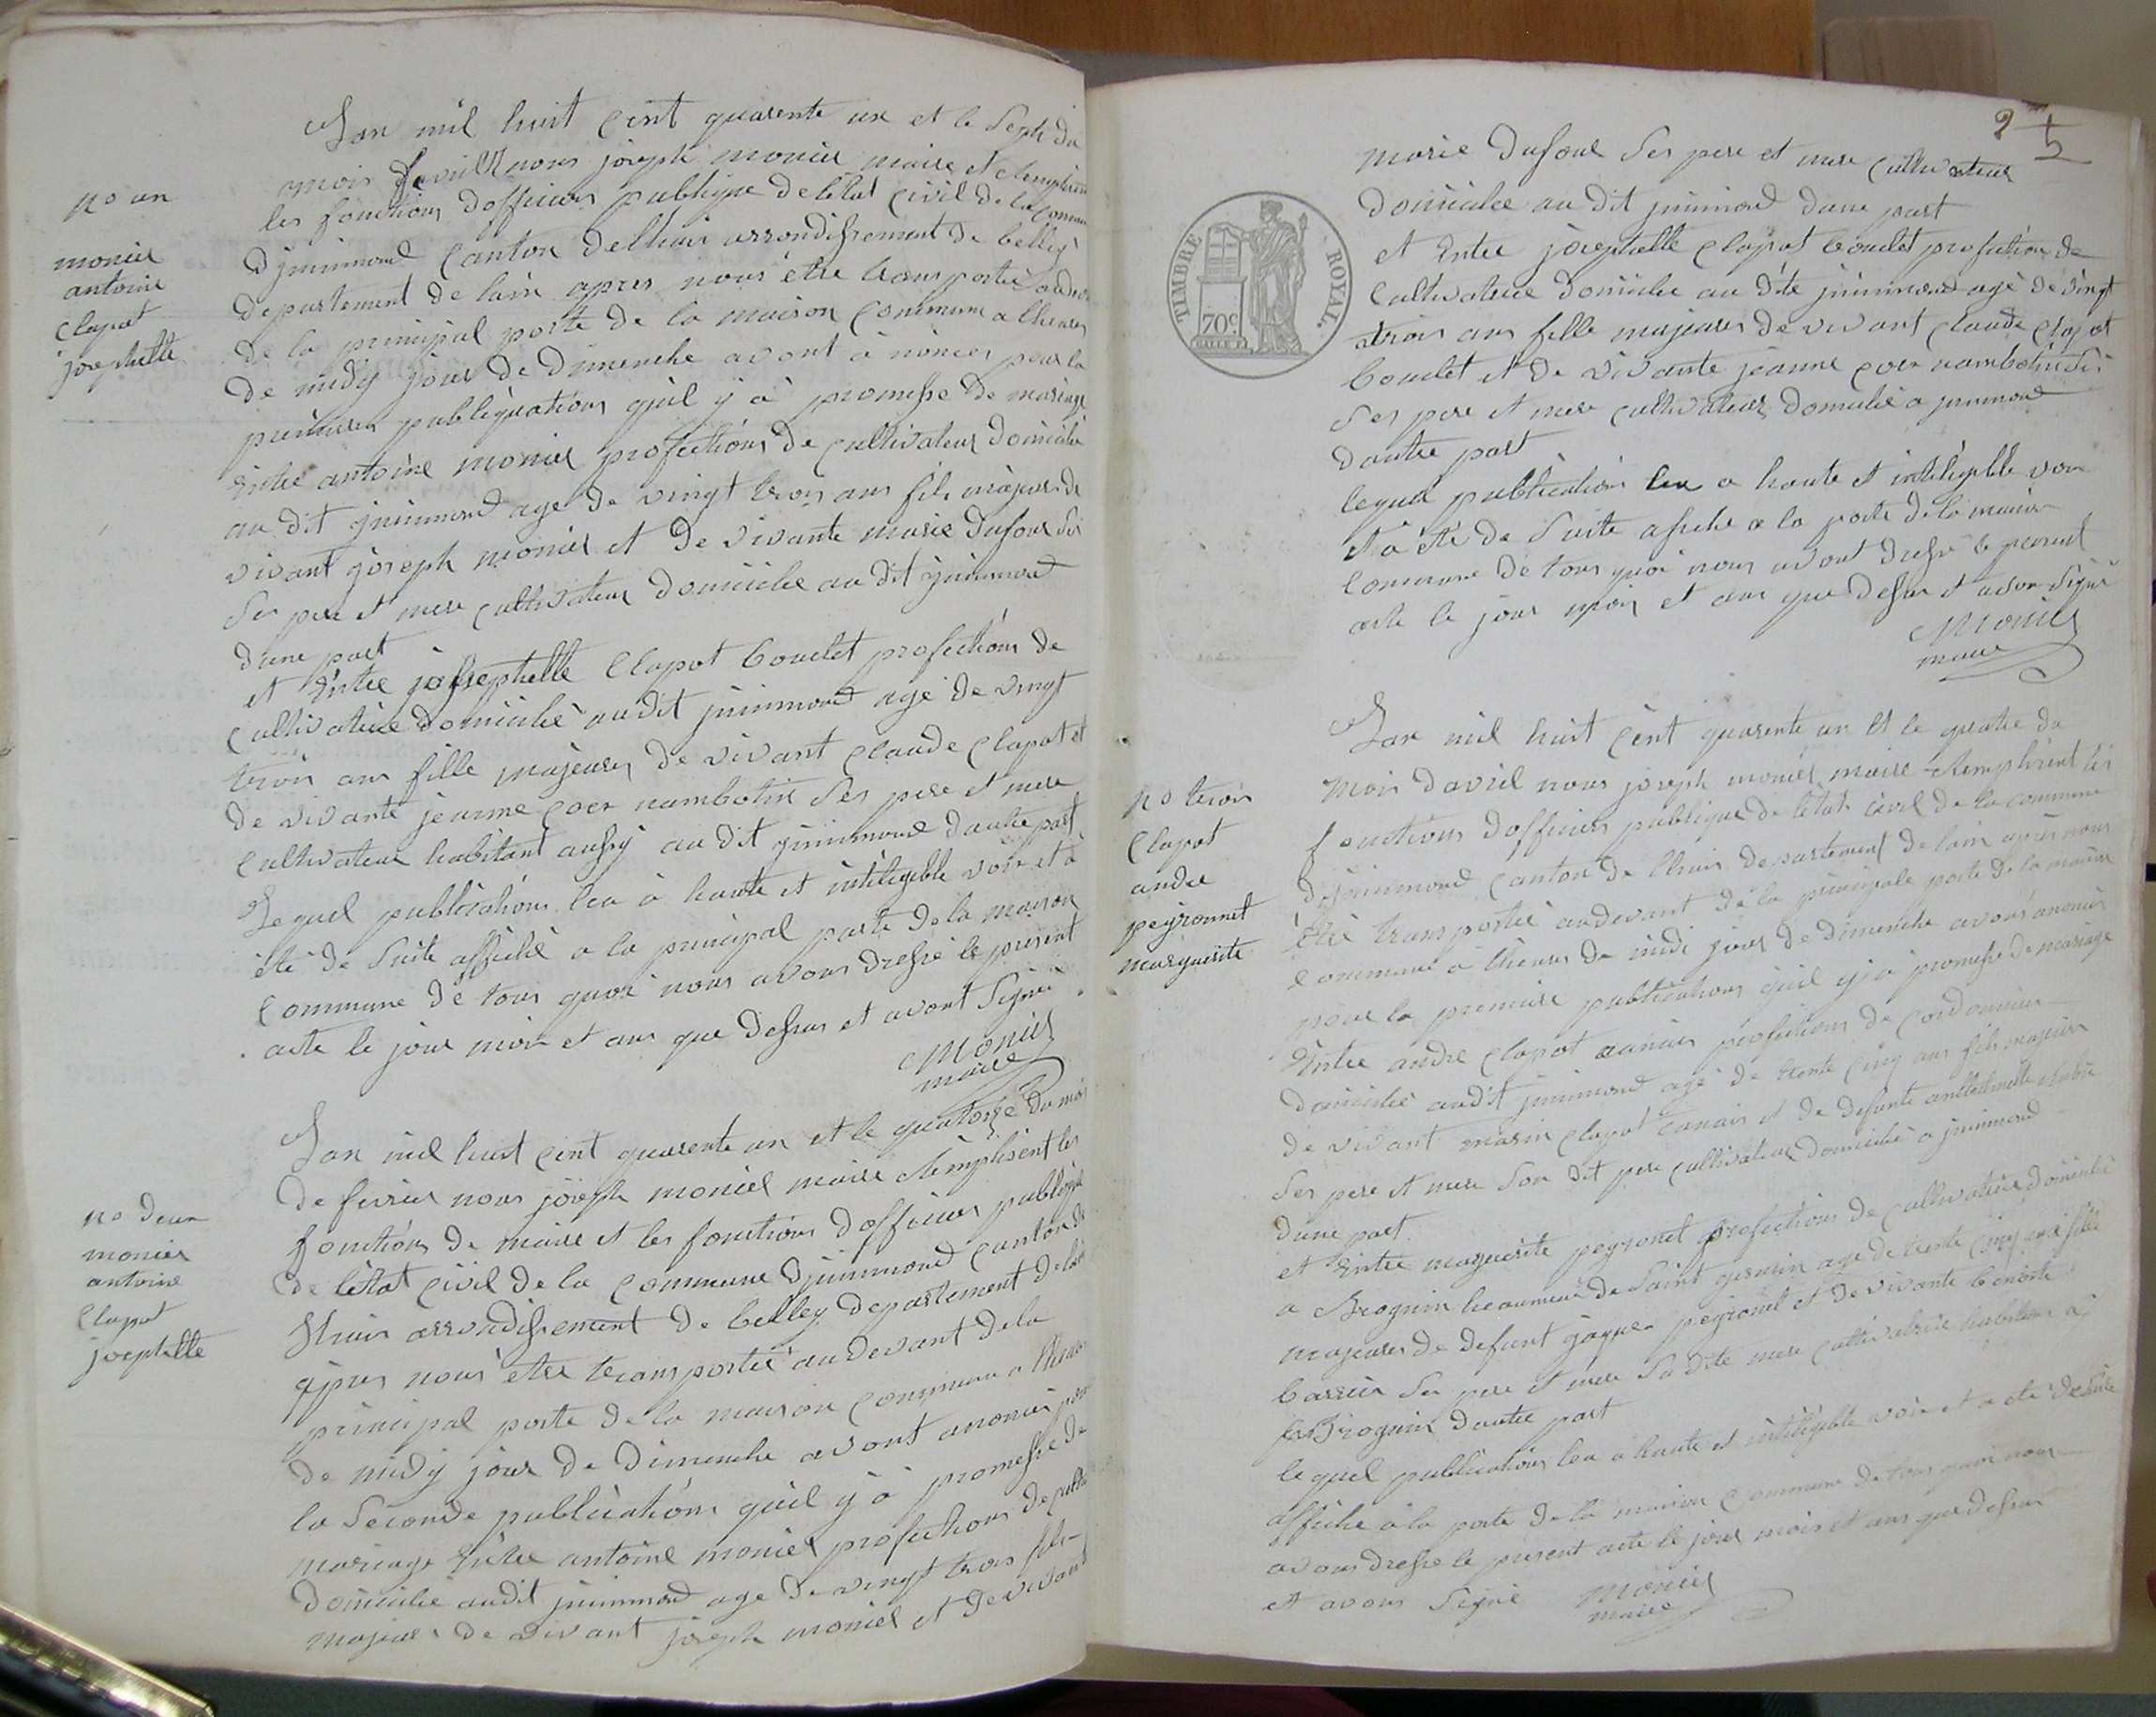 Lan mil huit cent quarente un et le Sept du
mois fevrier nous joseph monier maire et remplisen
les fonctions dofficier publique de letat civil de la commu
dinnimond canton delhuis arrondissement de belley
departement de lain apres nous etre transportée audevan
de la principal porte de la maison commune a lheures
de midy jour de dimenche avont a nonces pour la
premiere publiquations quil y à promesse de mariage
Entre antoine monier profections de cultivateur domicilié
au dit jnnimond age de vingt trois ans fils majeur de
vivant joseph monier et de vivante marie dufour
Ses pere et mere cultivateur domicilié au dit jnnimond
dune part
et Entre josephette Clapot boulet profections de
cultivatrice domicilié audit jnnimond agé de vingt
trois ans fille majeures de vivant claude clapot et
de vivante jeanne Ses pere et mere
cultivateur habitant aussy au dit jnnimond dautre part
Lequel publications leu à haute et intéligible voir et à
été de Suite affiché a la principal porte de la maison
commune de tous quoi nous avons dressé le présent
acte le jour mois et ans que dessus et avont Signé
Monier
maire
no un
monier
antoine
Clapot
josephette
Lan mil huit cent quarente un et le quatorze du mois
de fevrier nous joseph monier maire remplisent les
fonctions de maire et les fonctions dofficier publique
de létat civil de la commune djnnimond canton de
lhuis arrondissement de belley departement de lain
apres nous etre transportée audevant de la
principal porte de la maison commune a lheure
de midy jour de dimenche avont anoncer pour
la Seconde publications quil y à promesse de
mariage Entre antoine monier profections de cultiv
domicilié audit jnnimond age de vingt trois fils
majeur de vivant joseph monier et de vivant
no deux
monier
antoine
Clapot
josephette
2
TIMBRE ROYAL.
70c
marie dufour Ses pere et mere cultivateur
domicilié au dit jnnimond dune part
et Entre josephette Clapot boulet profection de
Cultivatrice domicilie au dite jnnimond agé de vingt
trois ans fille majeures de vivant claude clapot
boulet et de vivante jeanne
Ses pere et mere cultivateur domicilié a jnnimond
dautre part
lequel publications leu a haute et inteligible voir
et à été de Suite affiche a la porte de la maison
commune de tous quoi nous avont dressé le present
acte le jour mois et ans que dessus et avon Signé
Monier
maire
Lan mil huit cent quarente un et le quatre du
mois davril nous joseph monier maire remplisent les
fonctions dofficier publique de létat civil de la commune
djnnimond canton de lhuis departement de lain après nous
être transportée audevant de la principale porte de la maison
commune a lheures de midi jour de dimenche avons anoncer
pour la premiere publications quil y à promesse de mariage
Entre andre clapot profections de cordonnier
domicilié audit jnnimond agé de trente cinq ans fils majeur
de vivant marin clapot et de defunte
Ses pere et mere Son dit pere cultivateur domicilié a jnnimond
dune part
et Entre marguerite peyronet profections de cultivatrice domicilié
a Brognin de Saint germin age de trente cinq fille
majeures de defunt jaque peyronet et de vivante benoite
barrier Ses pere et mere Sa dite mere cultivatrice habitant a
Brognin dautre part
lequel publications leu a haute et intéligible voir et a été de Suite
affiche à la porte de la maison commune de tous quoi nous
avons dressé le present acte le jour mois et ans que dessus
et avons Signé Monier
maire
no trois
Clapot
andre
peyronnet
marguerite